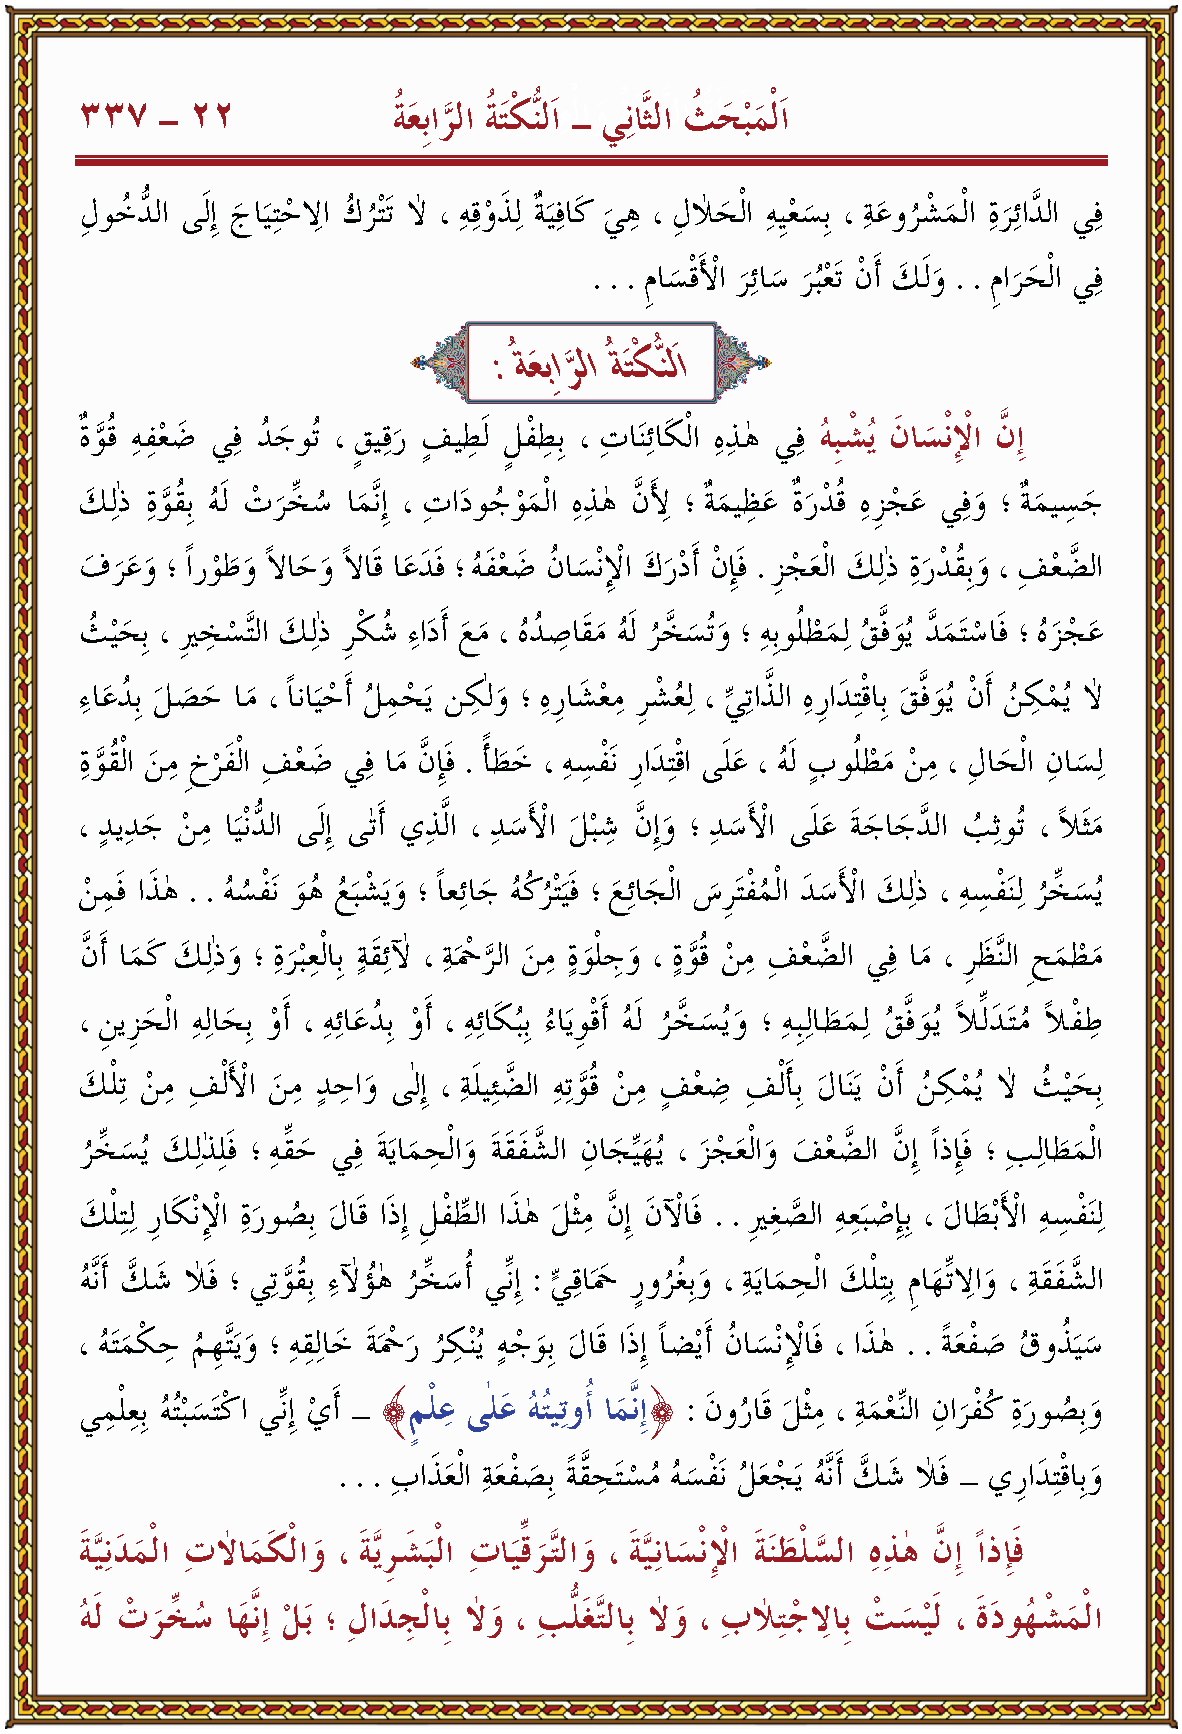 اَلْمَبْحَثُ الثَّانِي ـ اَلنُّكْتَةُ الرَّابِعَةُ ٢٢ ـ ٣٣٧
فِي الدَّائِرَةِ الْمَشْرُوعَةِ ، بِسَعْيِهِ الْحَلَالِ ، هِيَ كَافِيَةٌ لِذَوْقِهِ ، لَا تَتْرُكُ الِاحْتِيَاجَ إِلَى الدُّخُولِ
فِي الْحَرَامِ . . وَلَكَ أَنْ تَعْبُرَ سَائِرَ الْأَقْسَامِ . . .
اَلنُّكْتَةُ الرَّابِعَةُ :
إِنَّ الْإِنْسَانَ يُشْبِهُ فِي هٰذِهِ الْكَائِنَاتِ ، بِطِفْلٍ لَطِيفٍ رَقِيقٍ ، تُوجَدُ فِي ضَعْفِهِ قُوَّةٌ
جَسِيمَةٌ ؛ وَفِي عَجْزِهِ قُدْرَةٌ عَظِيمَةٌ ؛ لِأَنَّ هٰذِهِ الْمَوْجُودَاتِ ، إِنَّمَا سُخِّرَتْ لَهُ بِقُوَّةِ ذٰلِكَ
الضَّعْفِ ، وَبِقُدْرَةِ ذٰلِكَ الْعَجْزِ . فَإِنْ أَدْرَكَ الْإِنْسَانُ ضَعْفَهُ ؛ فَدَعَا قَالاً وَحَالاً وَطَوْراً ؛ وَعَرَفَ
عَجْزَهُ ؛ فَاسْتَمَدَّ يُوَفَّقُ لِمَطْلُوبِهِ ؛ وَتُسَخَّرُ لَهُ مَقَاصِدُهُ ، مَعَ أَدَاءِ شُكْرِ ذٰلِكَ التَّسْخِيرِ ، بِحَيْثُ
لَا يُمْكِنُ أَنْ يُوَفَّقَ بِاقْتِدَارِهِ الذَّاتِيِّ ، لِعُشْرِ مِعْشَارِهِ ؛ وَلٰكِن يَحْمِلُ أَحْيَاناً ، مَا حَصَلَ بِدُعَاءِ
لِسَانِ الْحَالِ ، مِنْ مَطْلُوبٍ لَهُ ، عَلَى اقْتِدَارِ نَفْسِهِ ، خَطَأً . فَإِنَّ مَا فِي ضَعْفِ الْفَرْخِ مِنَ الْقُوَّةِ
مَثَلاً ، تُوثِبُ الدَّجَاجَةَ عَلَى الْأَسَدِ ؛ وَإِنَّ شِبْلَ الْأَسَدِ ، الَّذِي أَتٰى إِلَى الدُّنْيَا مِنْ جَدِيدٍ ،
يُسَخِّرُ لِنَفْسِهِ ، ذٰلِكَ الْأَسَدَ الْمُفْتَرِسَ الْجَائِعَ ؛ فَيَتْرُكُهُ جَائِعاً ؛ وَيَشْبَعُ هُوَ نَفْسُهُ . . هٰذَا فَمِنْ
مَطْمَحِ النَّظَرِ ، مَا فِي الضَّعْفِ مِنْ قُوَّةٍ ، وَجِلْوَةٍ مِنَ الرَّحْمَةِ ، لَآئِقَةٍ بِالْعِبْرَةِ ؛ وَذٰلِكَ كَمَا أَنَّ
طِفْلاً مُتَدَلِّلاً يُوَفَّقُ لِمَطَالِبِهِ ؛ وَيُسَخَّرُ لَهُ أَقْوِيَاءُ بِبُكَائِهِ ، أَوْ بِدُعَائِهِ ، أَوْ بِحَالِهِ الْحَزِينِ ،
بِحَيْثُ لَا يُمْكِنُ أَنْ يَنَالَ بِأَلْفِ ضِعْفٍ مِنْ قُوَّتِهِ الضَّئِيلَةِ ، إِلٰى وَاحِدٍ مِنَ الْأَلْفِ مِنْ تِلْكَ
الْمَطَالِبِ ؛ فَإِذاً إِنَّ الضَّعْفَ وَالْعَجْزَ ، يُهَيِّجَانِ الشَّفَقَةَ وَالْحِمَايَةَ فِي حَقِّهِ ؛ فَلِذٰلِكَ يُسَخِّرُ
لِنَفْسِهِ الْأَبْطَالَ ، بِإِصْبَعِهِ الصَّغِيرِ . . فَالْآنَ إِنَّ مِثْلَ هٰذَا الطِّفْلِ إِذَا قَالَ بِصُورَةِ الْإِنْكَارِ لِتِلْكَ
الشَّفَقَةِ ، وَالِاتِّهَامِ بِتِلْكَ الْحِمَايَةِ ، وَبِغُرُورٍ حَمَاقِيٍّ : إِنِّي أُسَخِّرُ هٰؤُلَآءِ بِقُوَّتِي ؛ فَلَا شَكَّ أَنَّهُ
سَيَذُوقُ صَفْعَةً . . هٰذَا ، فَالْإِنْسَانُ أَيْضاً إِذَا قَالَ بِوَجْهٍ يُنْكِرُ رَحْمَةَ خَالِقِهِ ؛ وَيَتَّهِمُ حِكْمَتَهُ ،
وَبِصُورَةِ كُفْرَانِ النِّعْمَةِ ، مِثْلَ قَارُونَ : ﴿إِنَّمَا أُوتِيتُهُ عَلٰى عِلْمٍ﴾ ـ أَيْ إِنِّي اكْتَسَبْتُهُ بِعِلْمِي
وَبِاقْتِدَارِي ـ فَلَا شَكَّ أَنَّهُ يَجْعَلُ نَفْسَهُ مُسْتَحِقَّةً بِصَفْعَةِ الْعَذَابِ . . .
فَإِذاً إِنَّ هٰذِهِ السَّلْطَنَةَ الْإِنْسَانِيَّةَ ، وَالتَّرَقِّيَاتِ الْبَشَرِيَّةَ ، وَالْكَمَالَاتِ الْمَدَنِيَّةَ
الْمَشْهُودَةَ ، لَيْسَتْ بِالِاجْتِلَابِ ، وَلَا بِالتَّغَلُّبِ ، وَلَا بِالْجِدَالِ ؛ بَلْ إِنَّهَا سُخِّرَتْ لَهُ